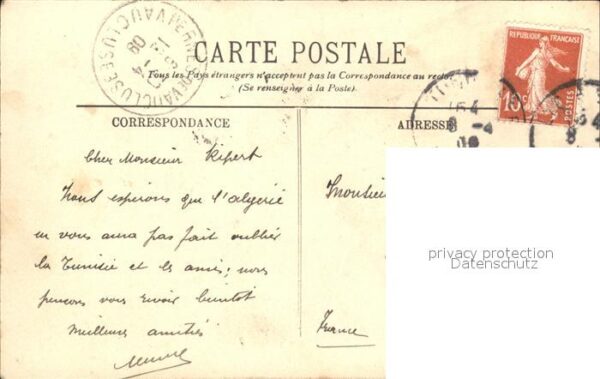 CARTE POSTALE
Tous les Pays étrangers n'acceptent pas la Correspondance au recto
(Se renseigner à la Poste).
REPUBLIQUE FRANÇAISE
10c
POSTES
VAUCLUSE
CORRESPONDANCE
ADRESSE
Cher Monsieur Ripert
Nous espérons que l'algérie
ne vous aura pas fait oublier
la Tunisie et les amis; nous
pensons vous revoir bientôt
Meilleures amitiés
Monsieur
France
privacy protection
Datenschutz